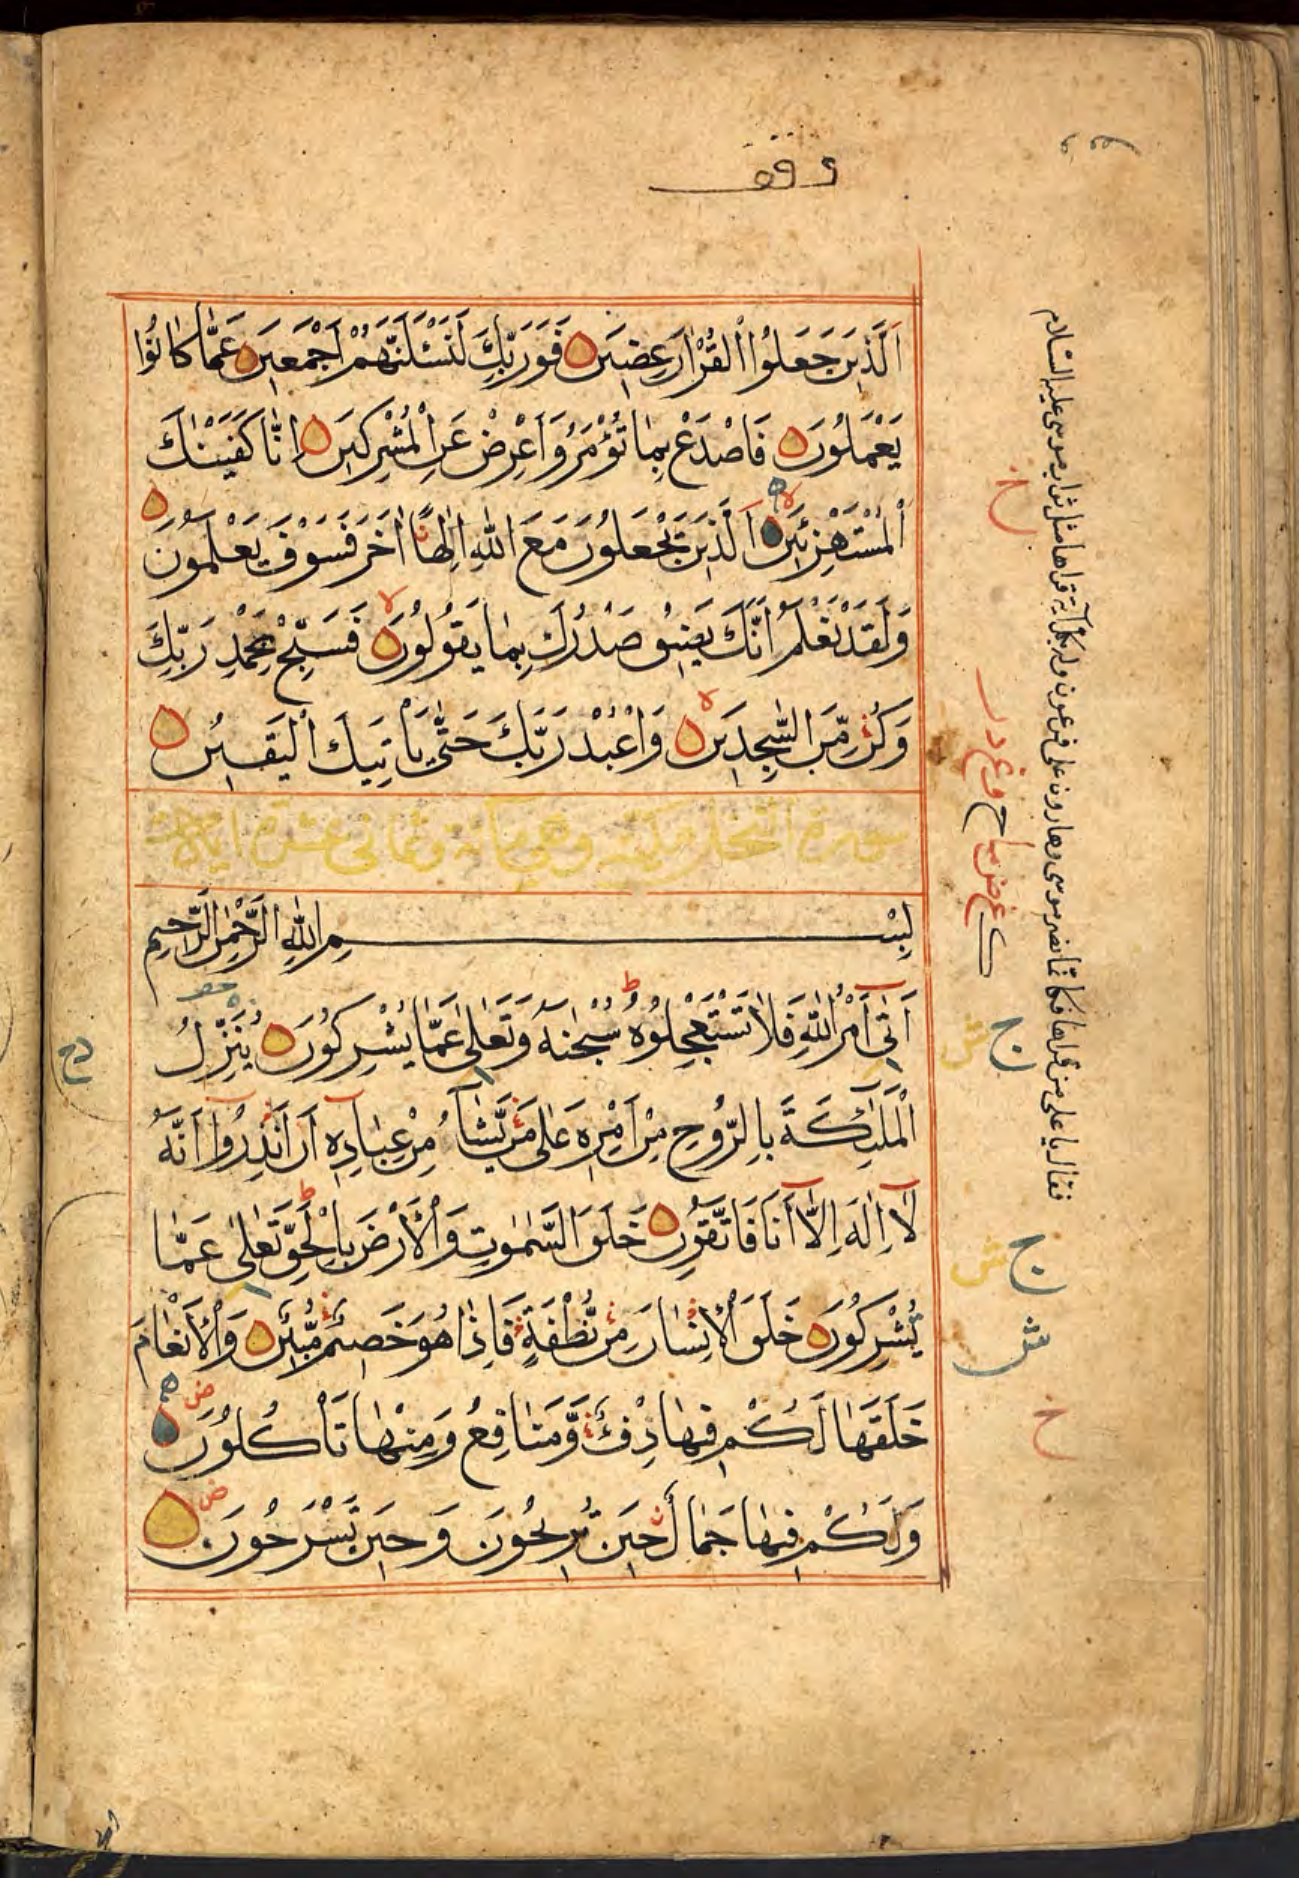 وقف
اَلَّذِينَ جَعَلُوا الْقُرْاٰنَ عِضِينَ فَوَرَبِّكَ لَنَسْـَٔلَنَّهُمْ اَجْمَعِينَ عَمَّا كَانُوا
يَعْمَلُونَ فَاصْدَعْ بِمَا تُؤْمَرُ وَاَعْرِضْ عَنِ الْمُشْرِكِينَ اِنَّا كَفَيْنٰكَ
الْمُسْتَهْزِئِينَ اَلَّذِينَ يَجْعَلُونَ مَعَ اللّٰهِ اِلٰهًا اٰخَرَ فَسَوْفَ يَعْلَمُونَ
وَلَقَدْ نَعْلَمُ اَنَّكَ يَضِيقُ صَدْرُكَ بِمَا يَقُولُونَ فَسَبِّحْ بِحَمْدِ رَبِّكَ
وَكُنْ مِّنَ السّٰجِدِينَ وَاعْبُدْ رَبَّكَ حَتّٰى يَأْتِيَكَ الْيَقِينُ
سورة النحل مكية وهي مائة وثماني عشرة اياة
بِسْمِ اللّٰهِ الرَّحْمٰنِ الرَّحِيمِ
اَتٰى اَمْرُ اللّٰهِ فَلَا تَسْتَعْجِلُوهُ سُبْحٰنَهُ وَتَعَالٰى عَمَّا يُشْرِكُونَ يُنَزِّلُ
الْمَلٰئِكَةَ بِالرُّوحِ مِنْ اَمْرِهِ عَلٰى مَنْ يَّشَآءُ مِنْ عِبَادِهِ اَنْ اَنْذِرُوا اَنَّهُ
لَا اِلٰهَ اِلَّا اَنَا فَاتَّقُونِ خَلَقَ السَّمٰوٰتِ وَالْاَرْضَ بِالْحَقِّ تَعَالٰى عَمَّا
يُشْرِكُونَ خَلَقَ الْاِنْسَانَ مِنْ نُّطْفَةٍ فَاِذَا هُوَ خَصِيمٌ مُّبِينٌ وَالْاَنْعَامَ
خَلَقَهَا لَكُمْ فِيهَا دِفْءٌ وَّمَنَافِعُ وَمِنْهَا تَأْكُلُونَ
وَلَكُمْ فِيهَا جَمَالٌ حِينَ تُرِيحُونَ وَحِينَ تَسْرَحُونَ